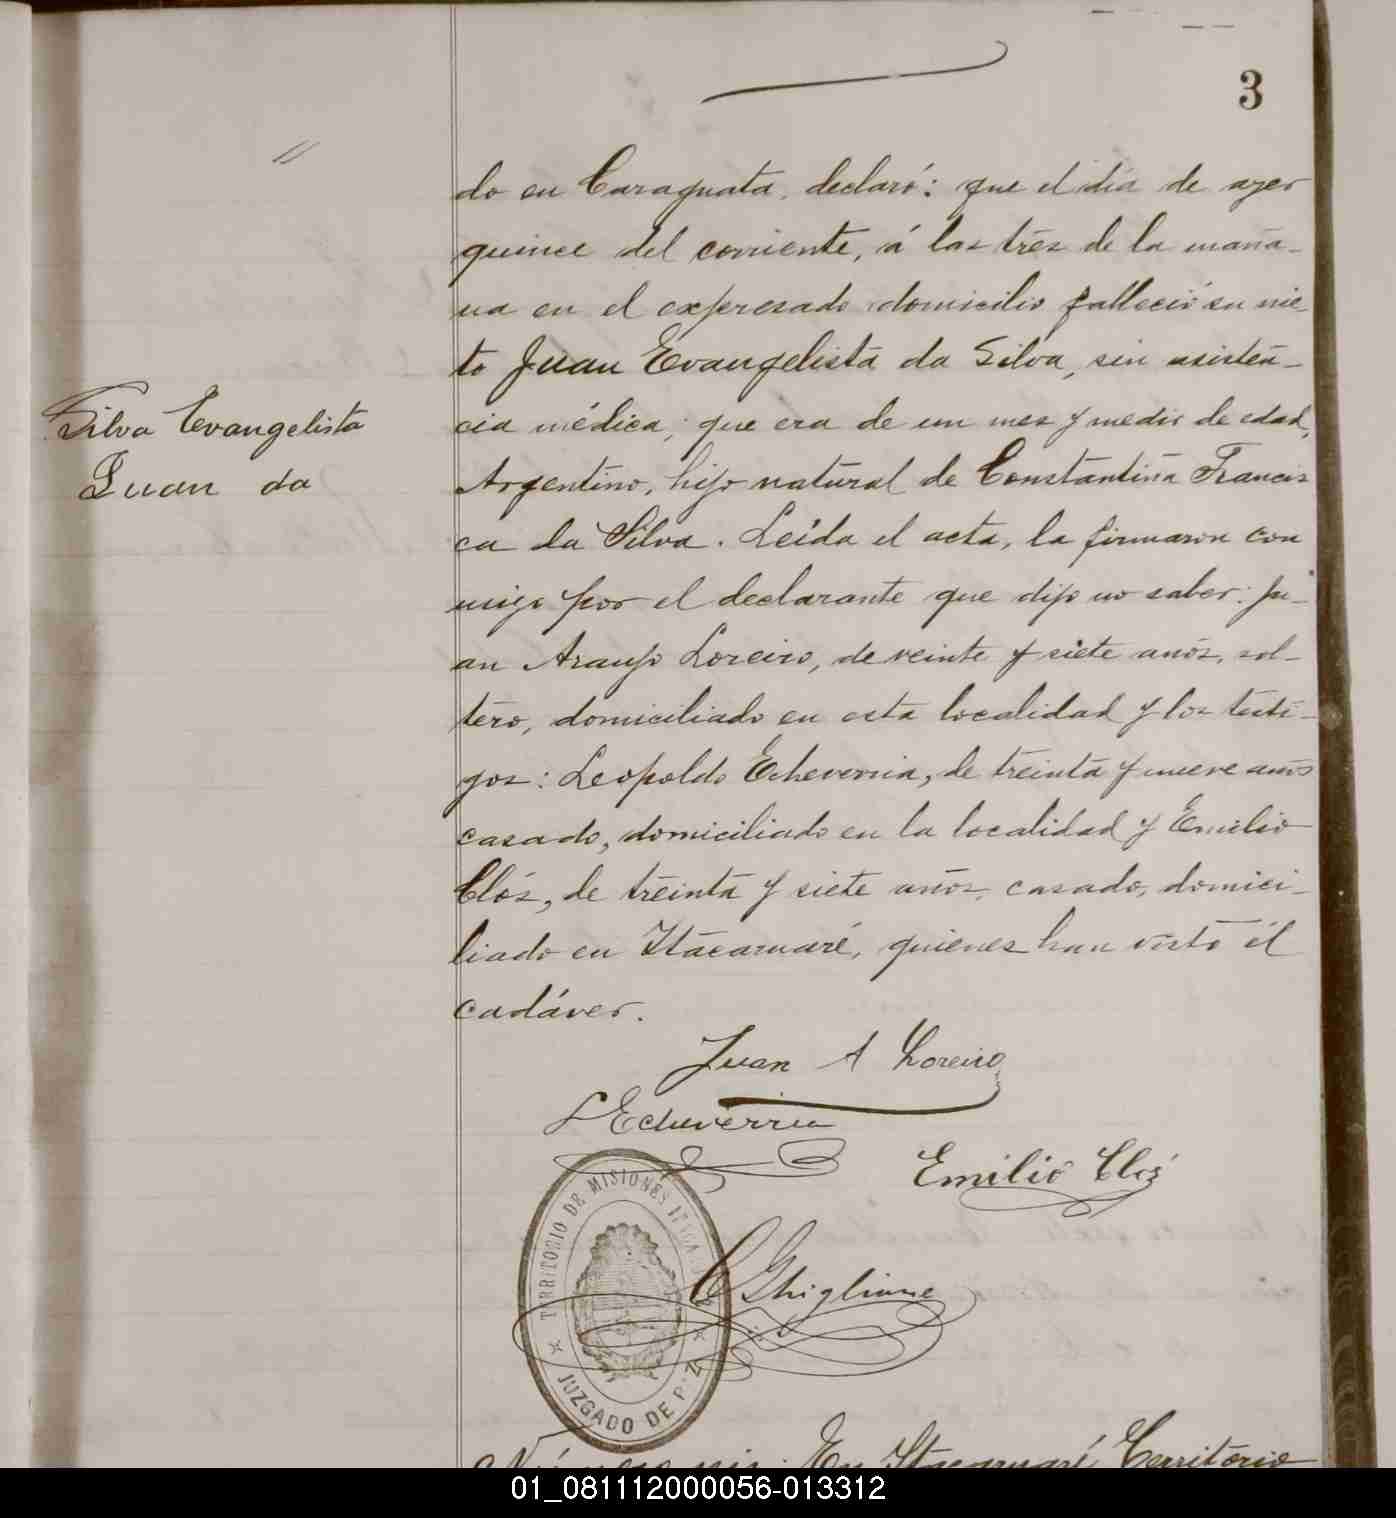 3
do en Caraguata, declaró: que el día de ayer
quince del corriente, á las tres de la maña-
na en el expresado domicilio falleció su nie
to Juan Evangelista da Silva, sin asisten-
Silva Evangelista
Juan da
cia médica; que era de un mes y medio de edad,
Argentino, hijo natural de Constantina Francis
ca da Silva. Leída el acta, la firmaron con
migo por el declarante que dijo no saber: Ju-
an Araujo Loreiro, de veinte y siete años, sol-
tero, domiciliado en esta localidad y los testi-
gos: Leopoldo Echeverria, de treinta y nueve años
casado, domiciliado en la localidad y Emilio
Clós, de treinta y siete años, casado, domici-
liado en Itacaruaré, quienes han visto el
cadáver.
Juan A Loreiro
L Echeverria
Emilio Clós
C Ghiglione
TERRITORIO DE MISIONES
JUZGADO DE PAZ
En Itacaruaré, Territorio
01_081112000056-013312